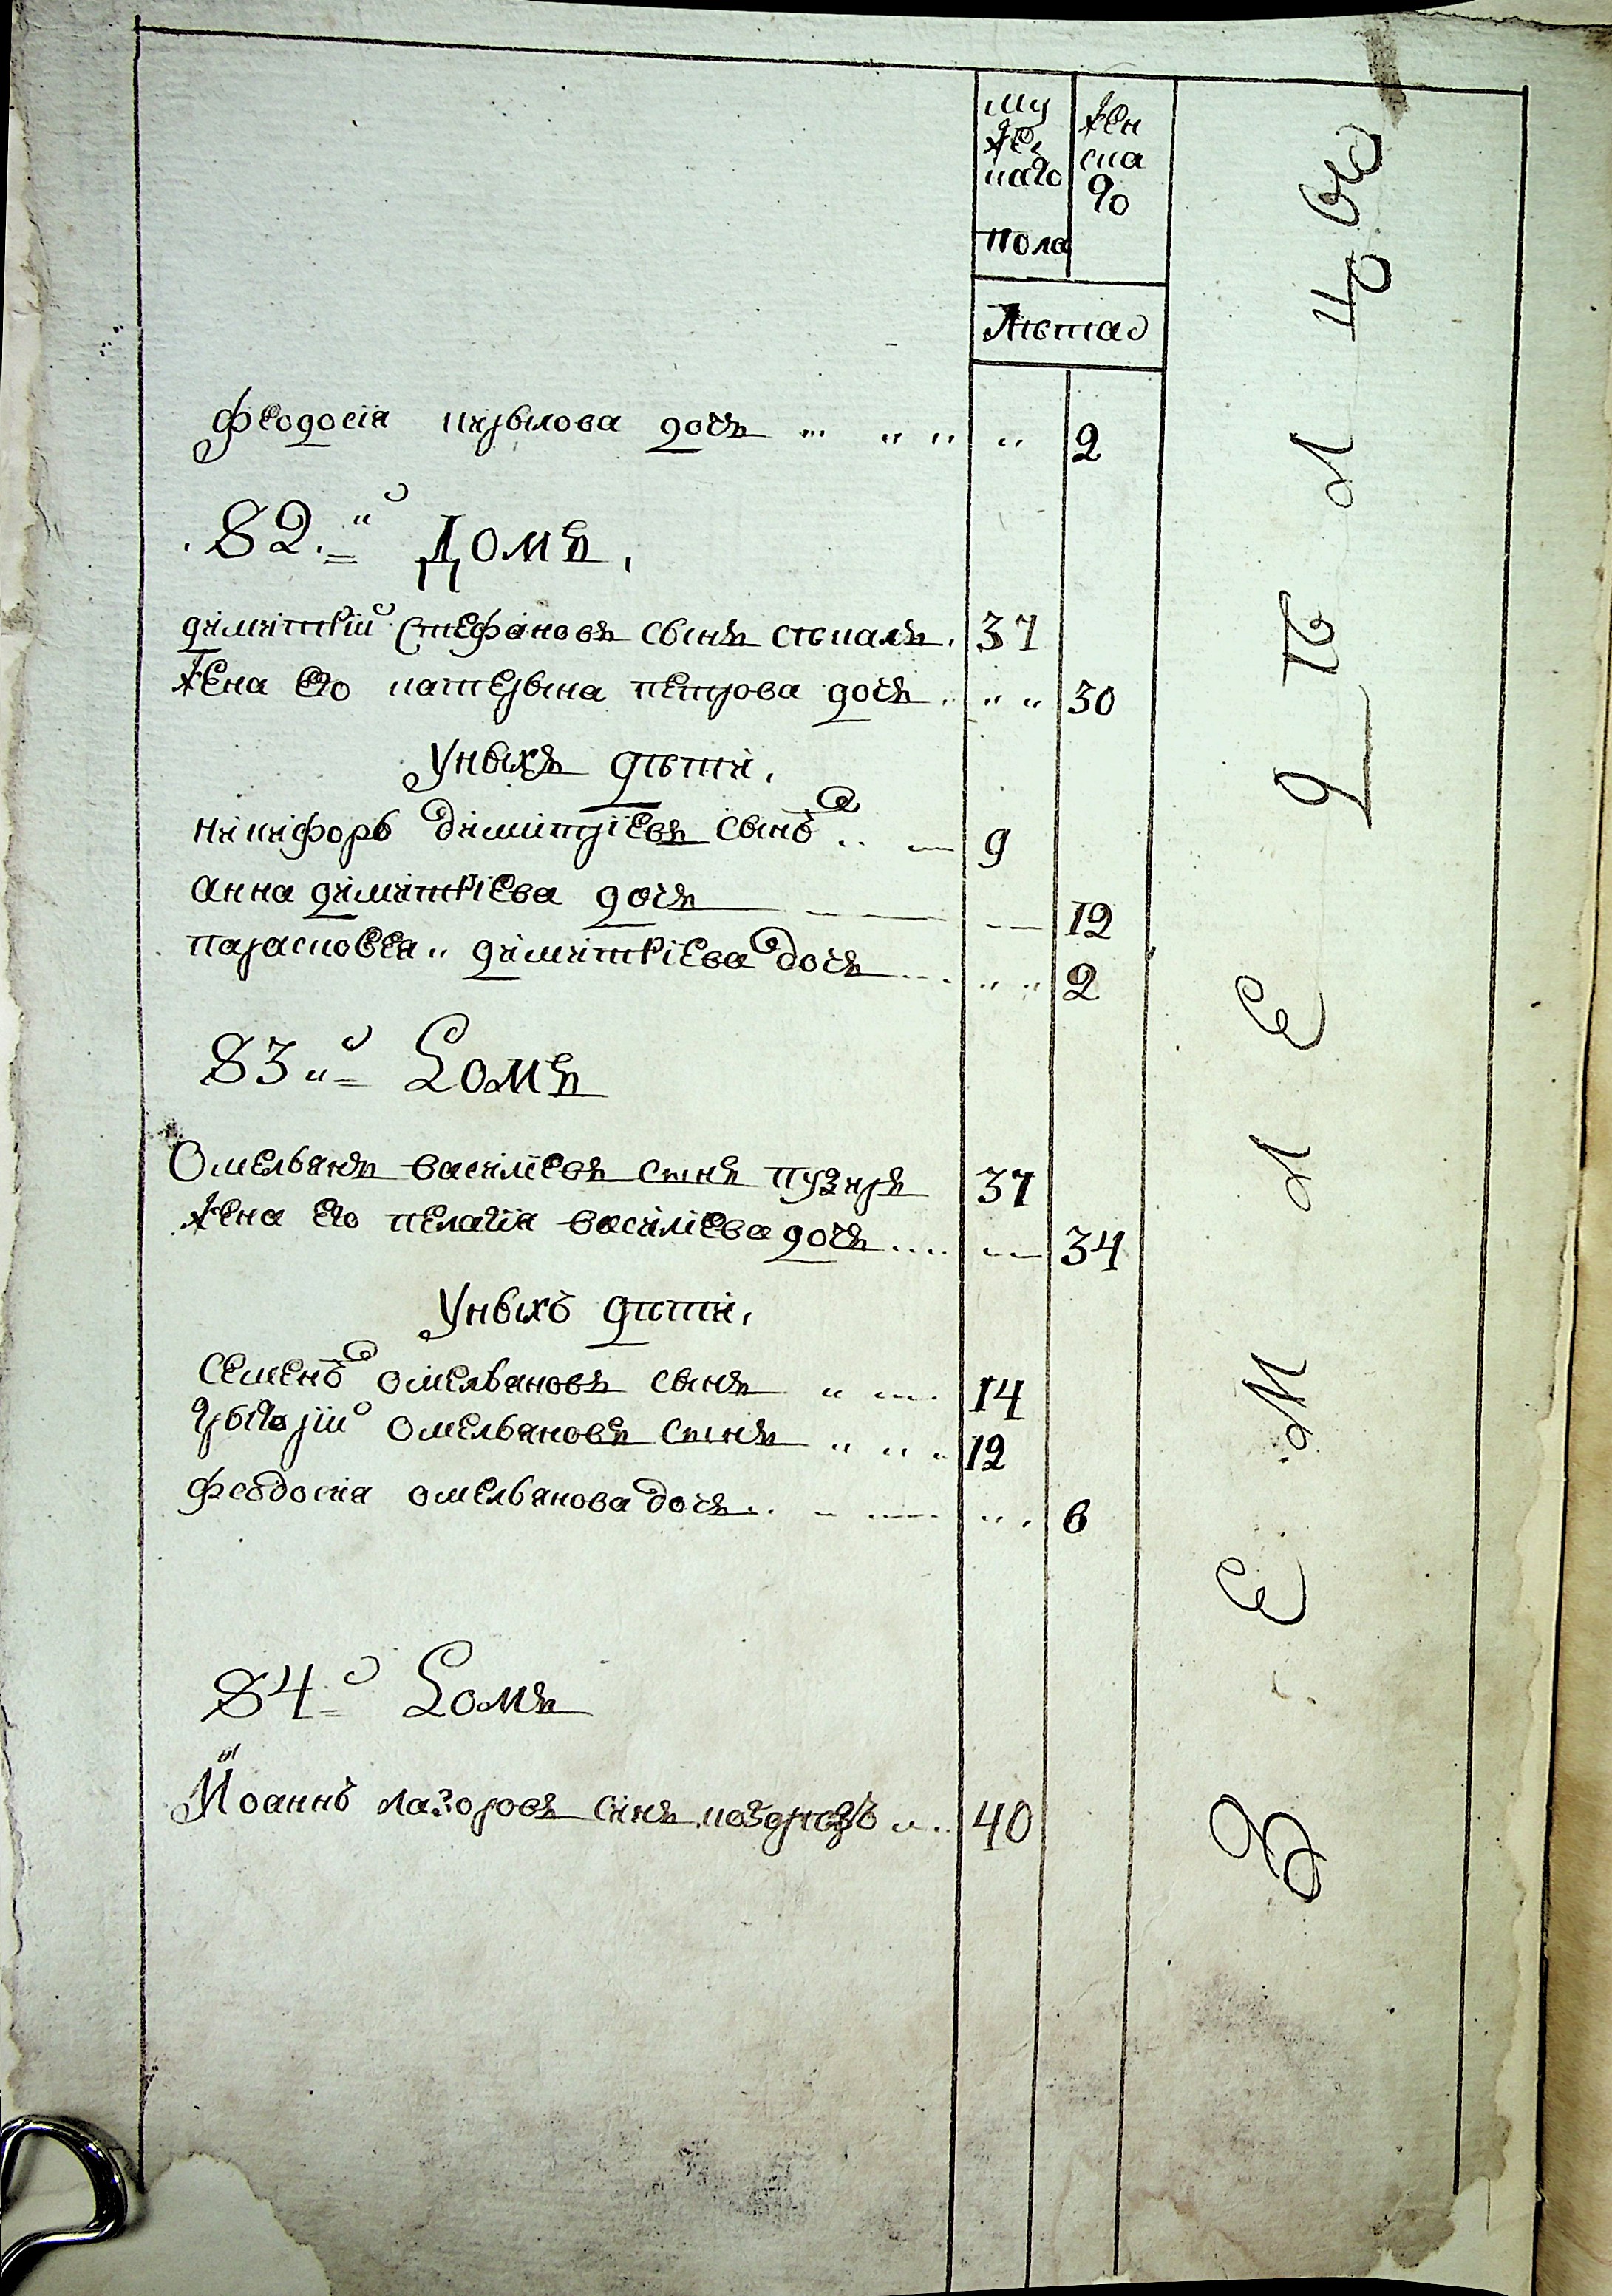 му жен
жес ска
каго го
пола
Лѣта
Феодосія кирылова дочъ 2
82 й Домъ
диметрій Стефановъ сынъ стъкалъ 37
жена его катерына петрова дочъ 30
Уныхъ дѣти
никифоръ димитріевъ сынъ 9
анна диметріева дочъ 12
парасковѣя диметріева дочъ 2
83 й Домъ
Омельянъ василіевъ сынъ пузиръ 37
жена его пелагія василіева дочъ 34
Уныхъ дѣти
Семенъ омельяновъ сынъ 14
Грыгорій Омельяновъ сынъ 12
феодосия омельянова дочъ 6
84 й Домъ
Иоаннъ лазоровъ синъ 40
З Е М Л Е Д Ѣ Л Ц Ы